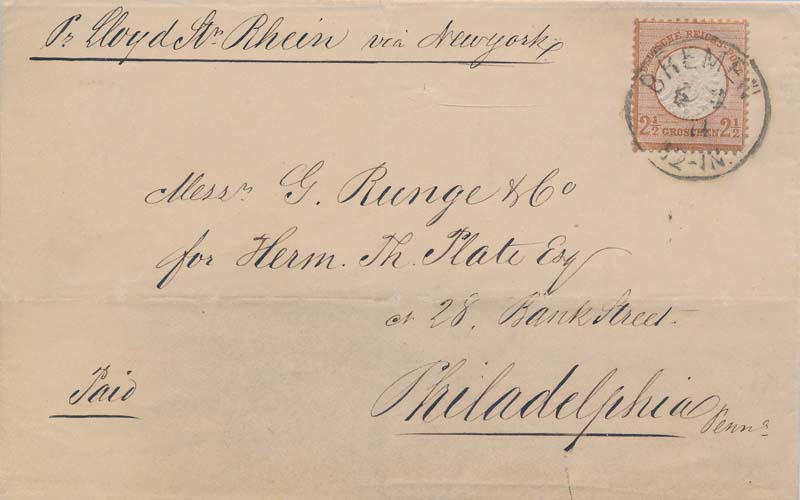 Pr Lloyd Str Rhein via Newyork
DEUTSCHE REICHS-POST
2½ GROSCHEN 2½
BREMEN
12-1N.
Messrs G. Runge & Co
for Herm. Th. Plate Esq
28, Bank Street
Paid
Philadelphia
Penna